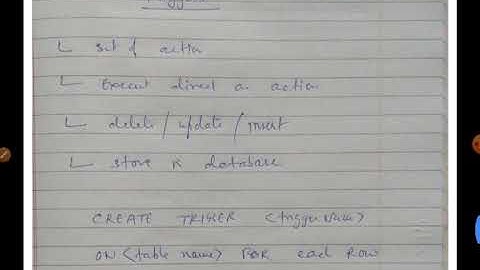 └ set of action
└ Execut direct on action
└ delete / update / insert
└ store in database
CREATE TRIGGER <trigger Name>
ON <table name> FOR each Row